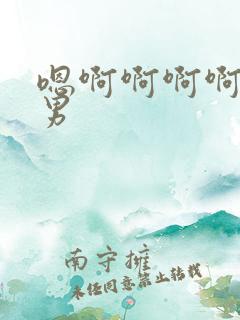 嗯啊啊啊啊
男
南守擁
未经同意禁止转载